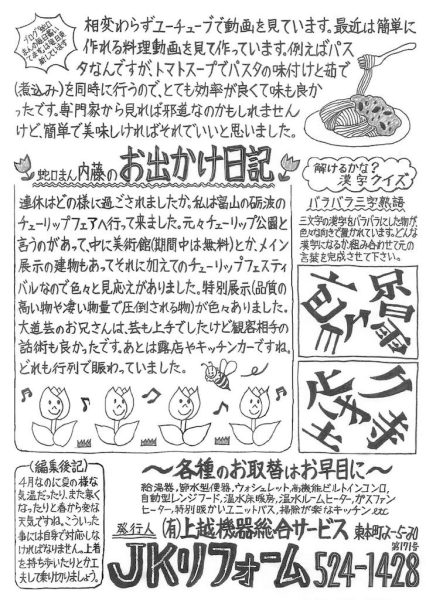 ブログ「蛇口
まんの毎日」
相変わらずユーチューブで動画を見ています。最近は簡単に
作れる料理動画を見て作っています。例えばパス
タなんですが、トマトスープでパスタの味付けと茹で
(煮込み)を同時に行うので、とても効率が良くて味も良か
ったです。専門家から見れば邪道なのかもしれません
けど、簡単で美味しければそれでいいと思いました。
蛇口まん内藤のお出かけ日記
連休はどの様に過ごされましたか。私は富山の砺波の
チューリップフェアへ行って来ました。元々チューリップ公園と
言うのがあって、中に美術館(期間中は無料)とか、メイン
展示の建物もあってそれに加えてのチューリップフェスティ
バルなので色々と見応えがありました。特別展示(品質の
高い物や凄い物量で圧倒される物)が色々ありました。
大道芸のお兄さんは、芸も上手でしたけど観客相手の
話術も良かったです。あとは露店やキッチンカーですね。
どれも行列で賑わっていました。
解けるかな?
漢字クイズ
バラバラ三字熟語
三文字の漢字をバラバラにした物が、
色々な向きで置かれています。どんな
漢字になるか組み合わせて元の
言葉を完成させて下さい。
(編集後記)
4月なのに夏の様な
気温だったり、また寒く
なったりと春から変な
天気ですね。こういった
事には自身で対応しな
ければなりません。上着
を持ち歩いたりと、工
夫して乗り切りましょう。
~各種のお取替はお早目に~
給湯器、節水型便器、ウォシュレット、高機能ビルトインコンロ、
自動型レンジフード、温水床暖房、温水ルームヒーター、ガスファン
ヒーター、特別暖かいユニットバス、掃除が楽なキッチンetc
発行人 (有)上越機器総合サービス 東本町2-5-30
第171号
JKリフォーム 524-1428